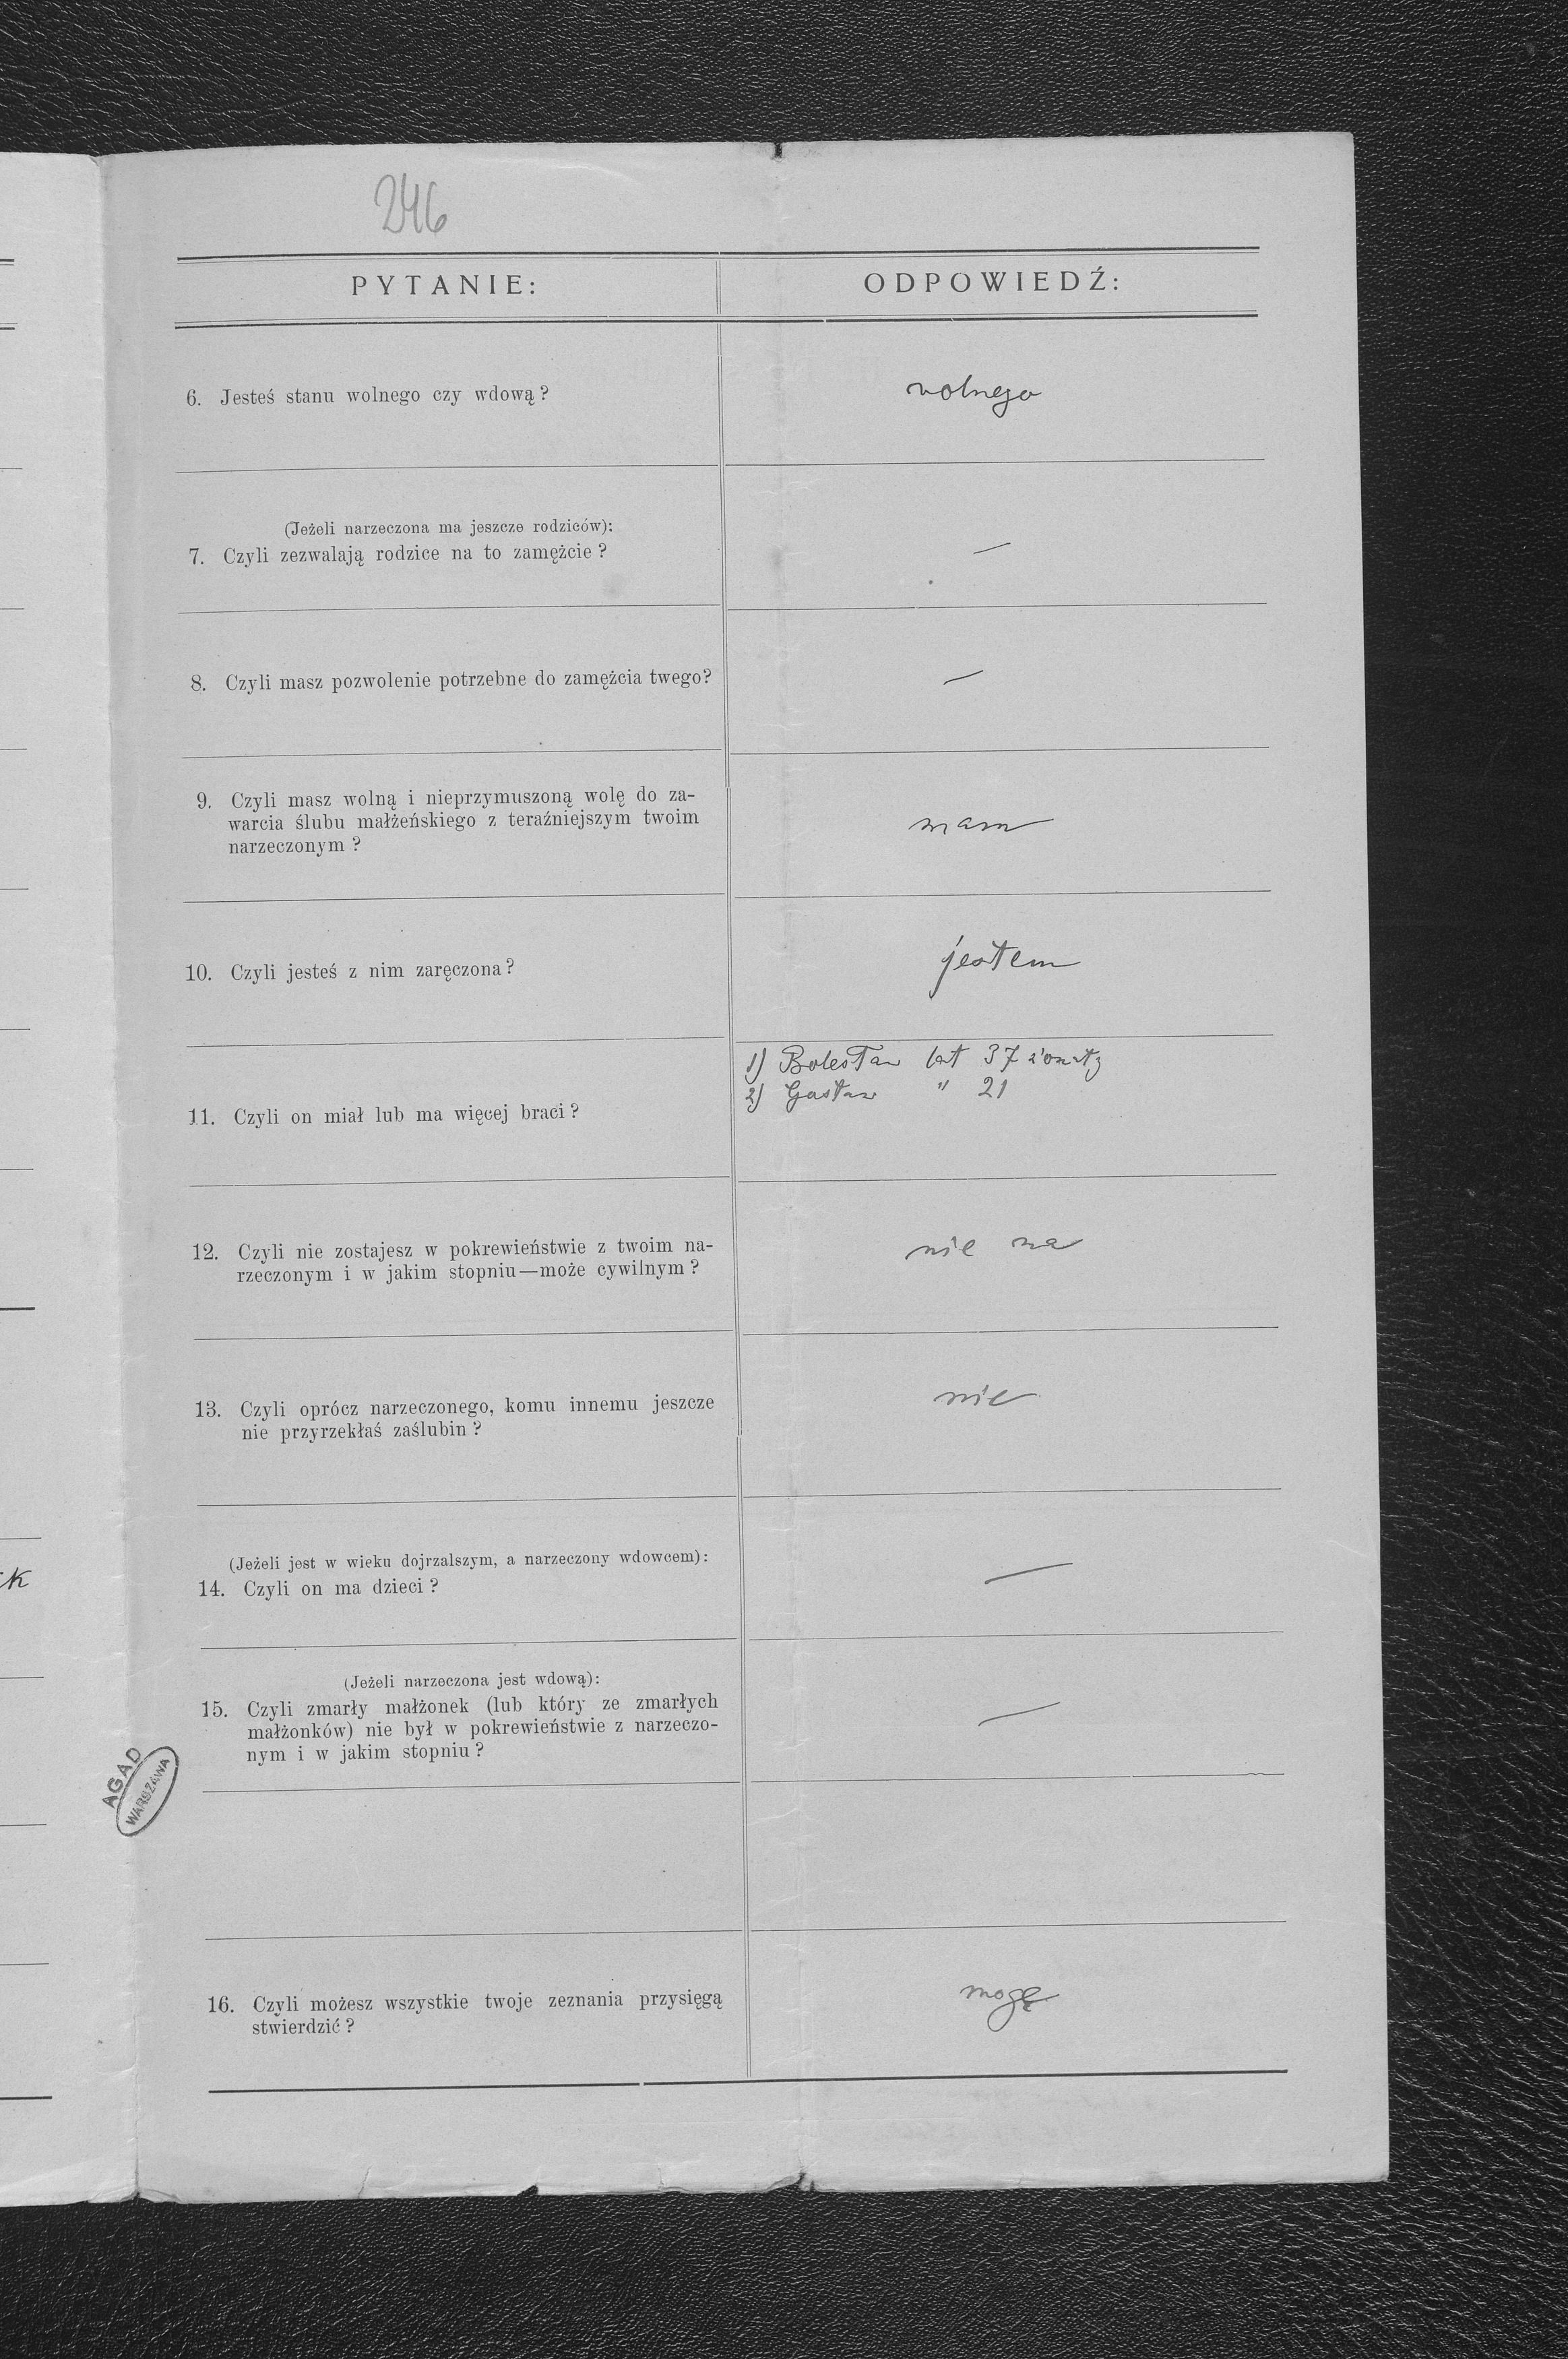 246
PYTANIE: ODPOWIEDŹ:
6. Jesteś stanu wolnego czy wdową? wolnego
(Jeżeli narzeczona ma jeszcze rodziców):
7. Czyli zezwalają rodzice na to zamężcie? —
8. Czyli masz pozwolenie potrzebne do zamężcia twego? —
9. Czyli masz wolną i nieprzymuszoną wolę do za-
warcia ślubu małżeńskiego z teraźniejszym twoim
narzeczonym?
mam
10. Czyli jesteś z nim zaręczona? jestem
11. Czyli on miał lub ma więcej braci?
1) Bolesław lat 37 żonaty
2) Gustaw " 21
12. Czyli nie zostajesz w pokrewieństwie z twoim na-
rzeczonym i w jakim stopniu—może cywilnym?
nie
13. Czyli oprócz narzeczonego, komu innemu jeszcze
nie przyrzekłaś zaślubin?
nie
(Jeżeli jest w wieku dojrzalszym, a narzeczony wdowcem):
14. Czyli on ma dzieci? —
(Jeżeli narzeczona jest wdową):
15. Czyli zmarły małżonek (lub który ze zmarłych
małżonków) nie był w pokrewieństwie z narzeczo-
nym i w jakim stopniu?
—
AGAD
WARSZAWA
16. Czyli możesz wszystkie twoje zeznania przysięgą
stwierdzić?
mogę